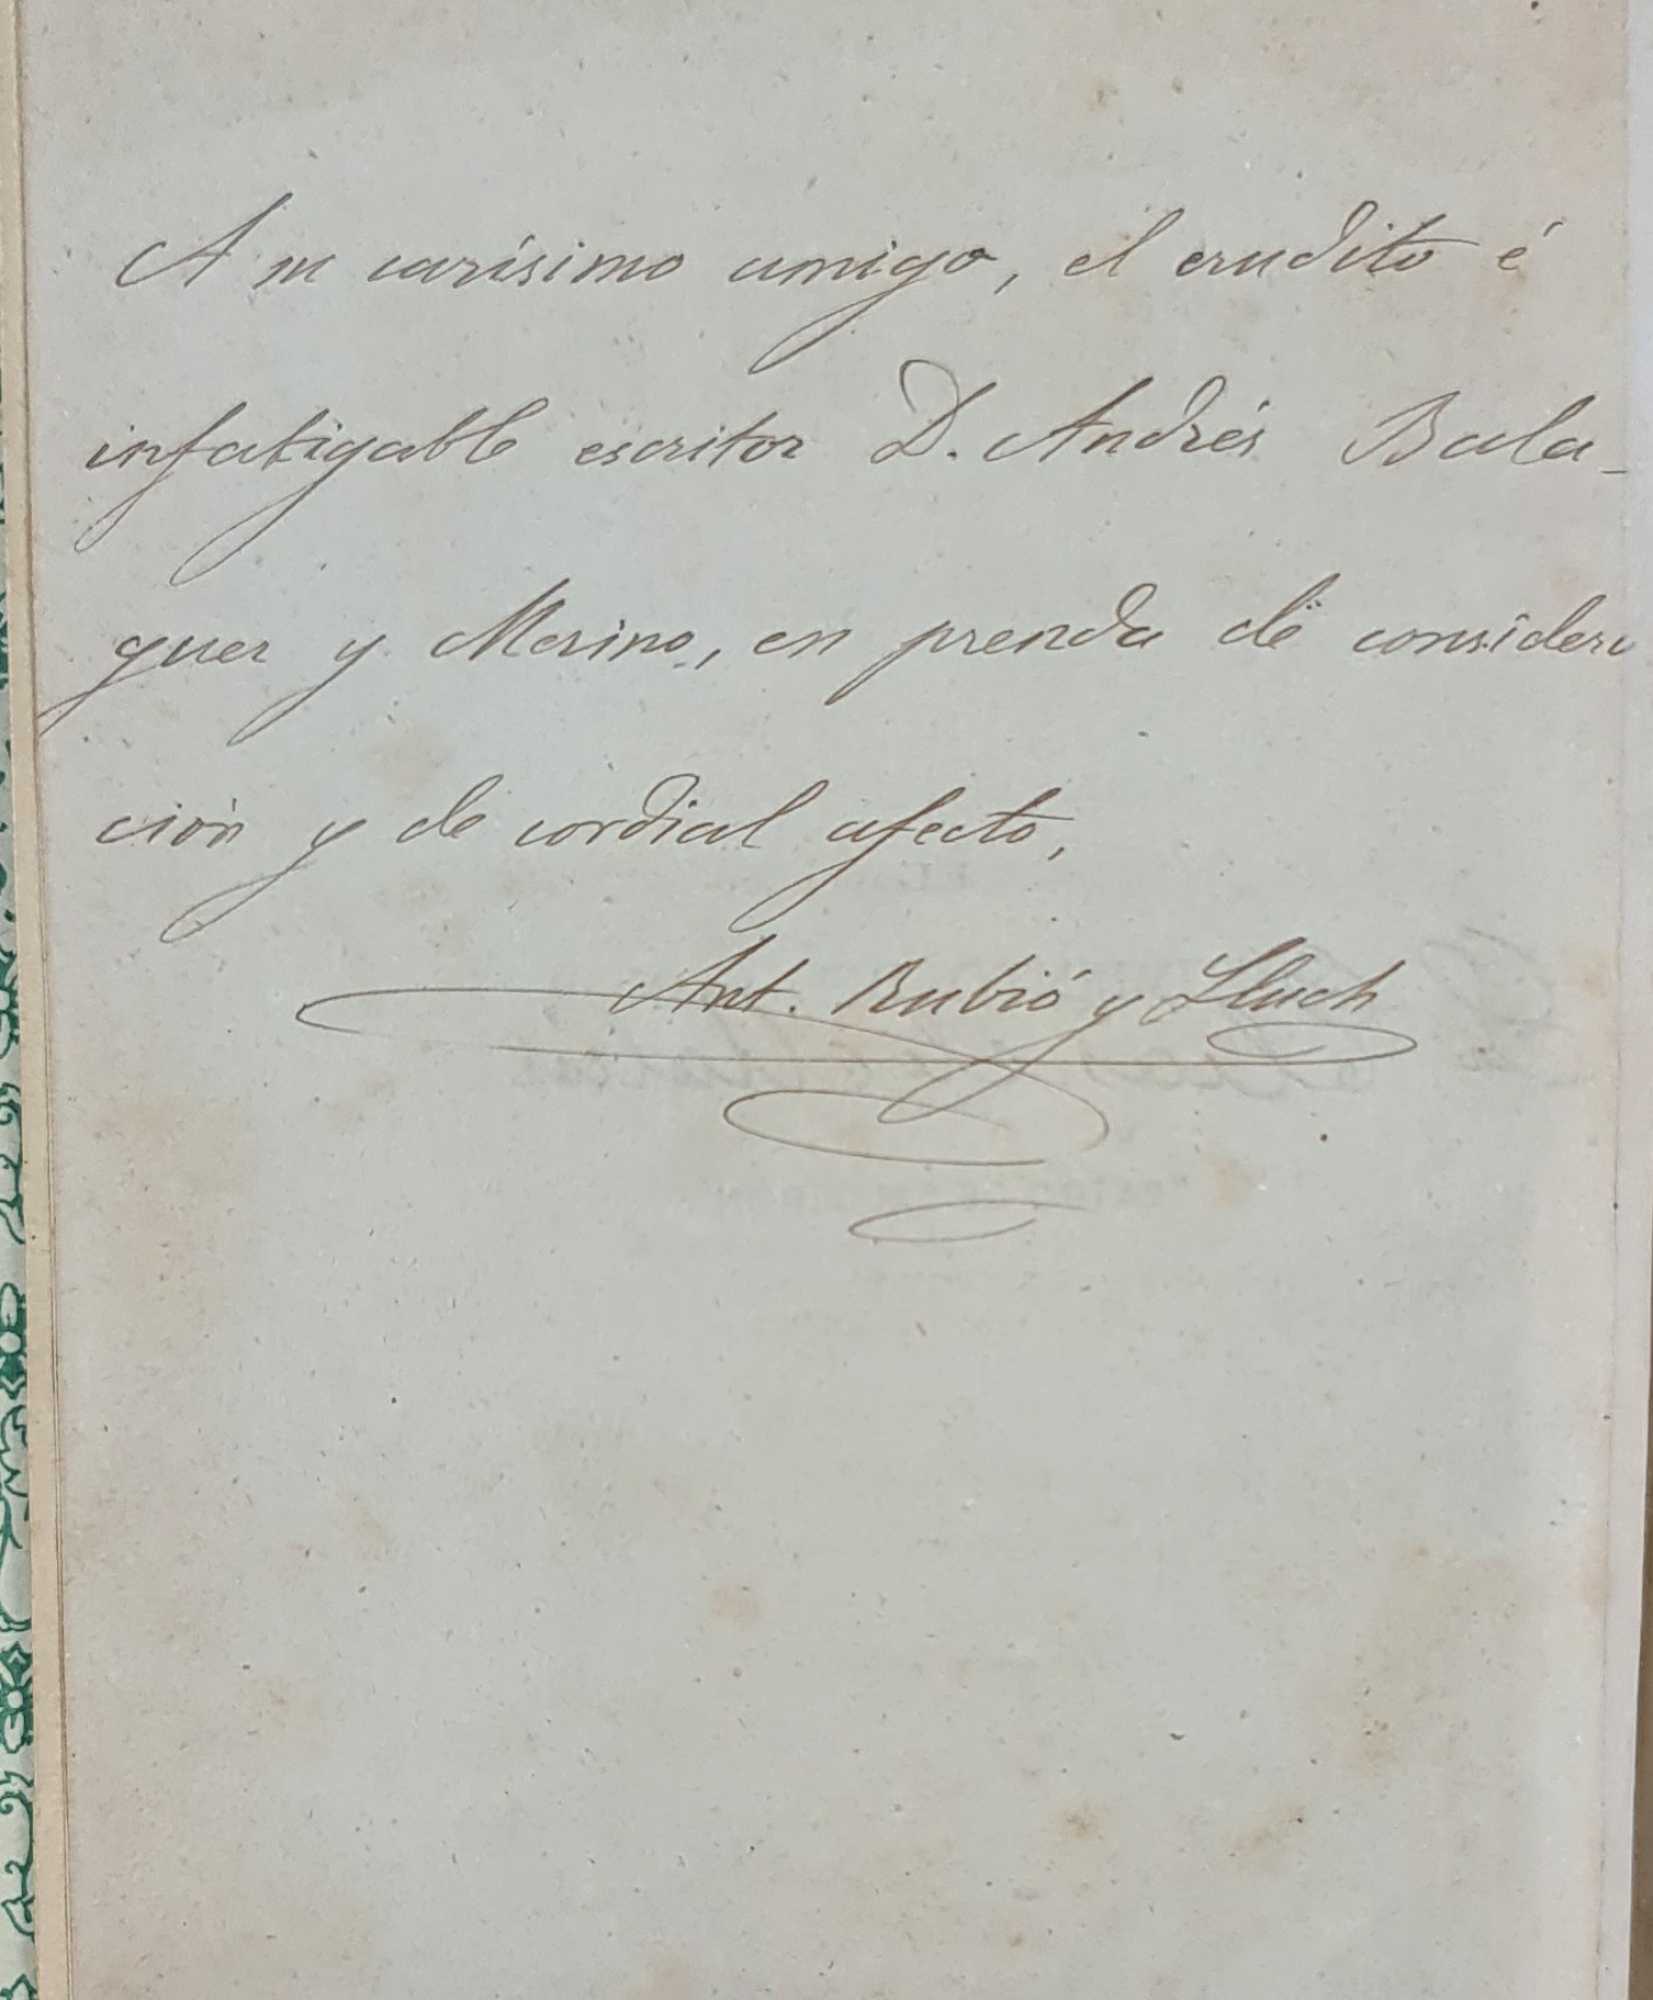 A m carísimo amigo, el erudito é
infatigable escritor D. Andrés Bala-
guer y Merino, en prenda de considera
ción y de cordial afecto,
Ant. Rubió y Lluch